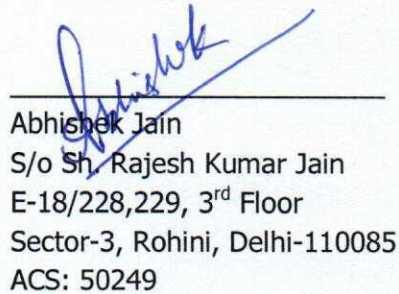 Abhishek
Abhishek Jain
S/o Sh. Rajesh Kumar Jain
E-18/228,229, 3rd Floor
Sector-3, Rohini, Delhi-110085
ACS: 50249